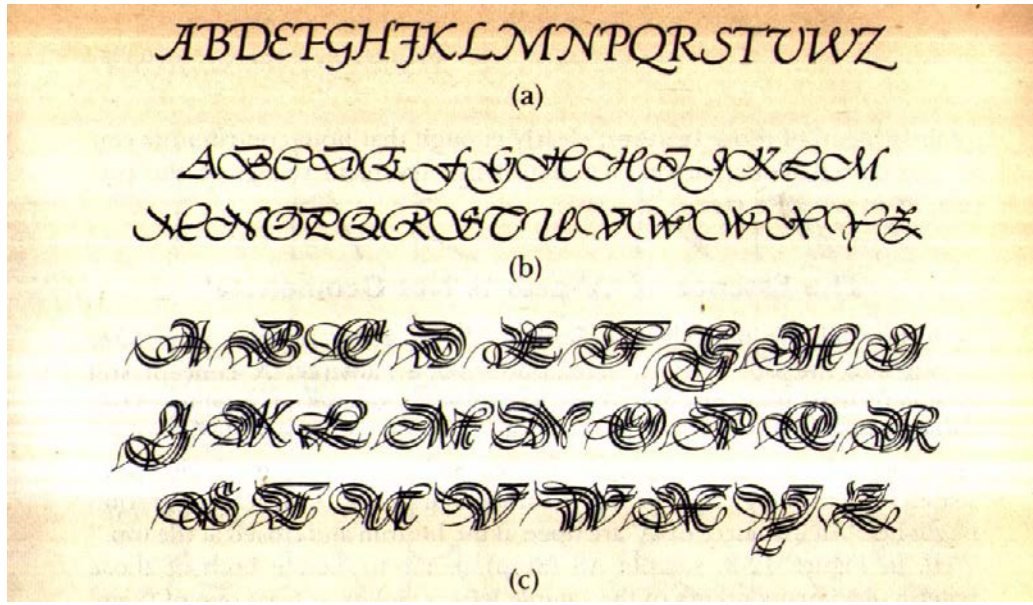 ABDEFGHJKLMNPQRSTUWZ
(a)
ABCDEFGHHIJKLM
MNOPQRSTUVWWXYZ
(b)
A B C D E F G H I
J K L M N O P Q R
S T U V W X Y Z
(c)